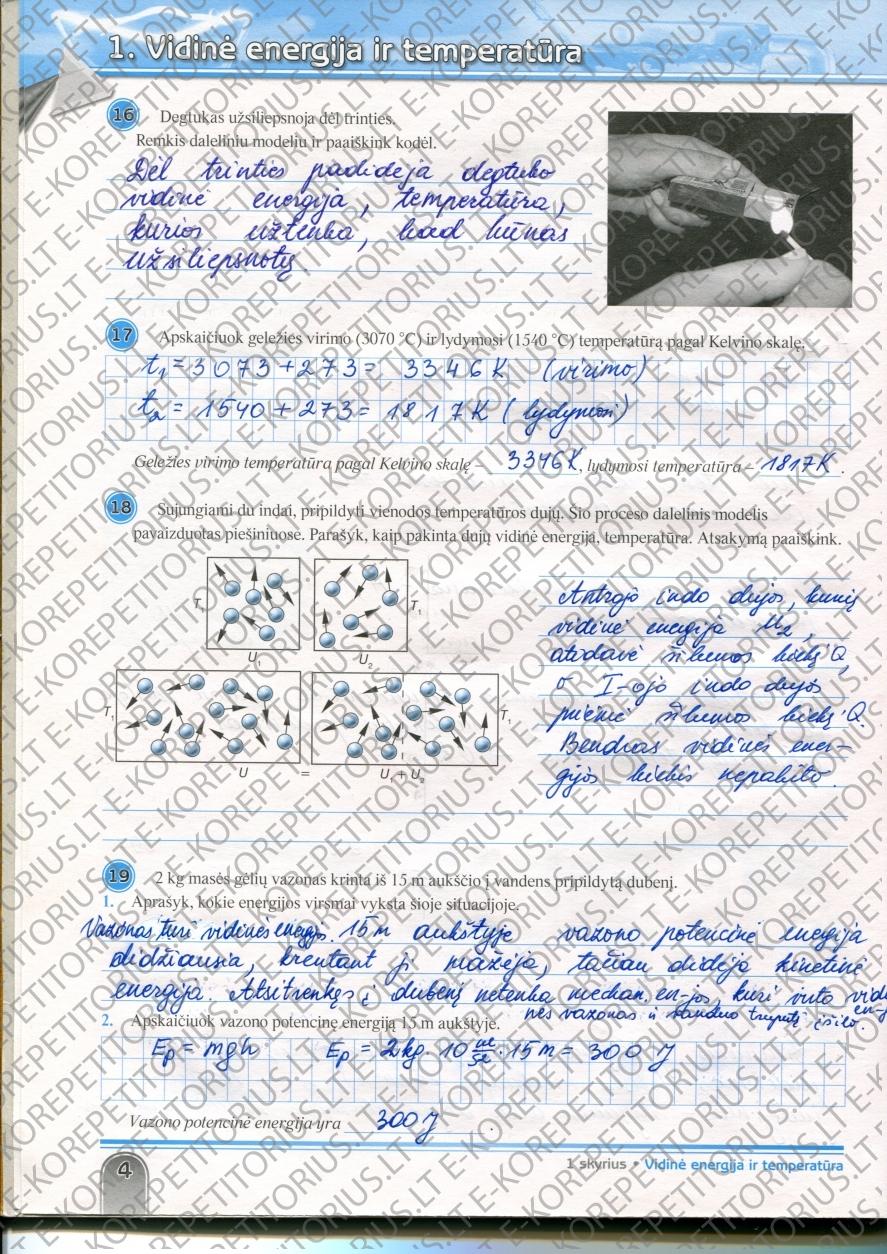 1. Vidinė energija ir temperatūra
16 Degtukas užsiliepsnoja dėl trinties.
Remkis daleliniu modeliu ir paaiškink kodėl.
Dėl trinties padidėja degtuko
vidinė energija, temperatūra,
kurios užtenka, kad kūnas
užsiliepsnotų.
17 Apskaičiuok geležies virimo (3070 °C) ir lydymosi (1540 °C) temperatūrą pagal Kelvino skalę.
t₁ = 3073 + 273 = 3346 K (virimo)
t₂ = 1540 + 273 = 1817 K (lydymosi)
Geležies virimo temperatūra pagal Kelvino skalę – 3346 K, lydymosi temperatūra – 1817 K.
18 Sujungiami du indai, pripildyti vienodos temperatūros dujų. Šio proceso dalelinis modelis
pavaizduotas piešiniuose. Parašyk, kaip pakinta dujų vidinė energija, temperatūra. Atsakymą paaiškink.
T₁ T₁
U₁ U₂
T₁ T₁
U = U₁ + U₂
Antrojo indo dujos, kurių
vidinė energija U₂,
atidavė šilumos kiekį Q,
o I-ojo indo dujos
priėmė šilumos kiekį Q.
Bendras vidinės ener-
gijos kiekis nepakito.
19 2 kg masės gėlių vazonas krinta iš 15 m aukščio į vandens pripildytą dubenį.
1. Aprašyk, kokie energijos virsmai vyksta šioje situacijoje.
Vazonas turi vidinės energijos. 15 m aukštyje vazono potencinė energija
didžiausia, krentant ji mažėja, tačiau didėja kinetinė
energija. Atsitrenkęs į dubenį netenka mechan. en-jos, kuri virto vid.
en-
nes vazonas ir vanduo truputį įšilo.
2. Apskaičiuok vazono potencinę energiją 15 m aukštyje.
Eₚ = mgh Eₚ = 2 kg · 10 m/s² · 15 m = 300 J
Vazono potencinė energija yra 300 J.
4
1 skyrius • Vidinė energija ir temperatūra
E-KOREPETITORIUS.LT